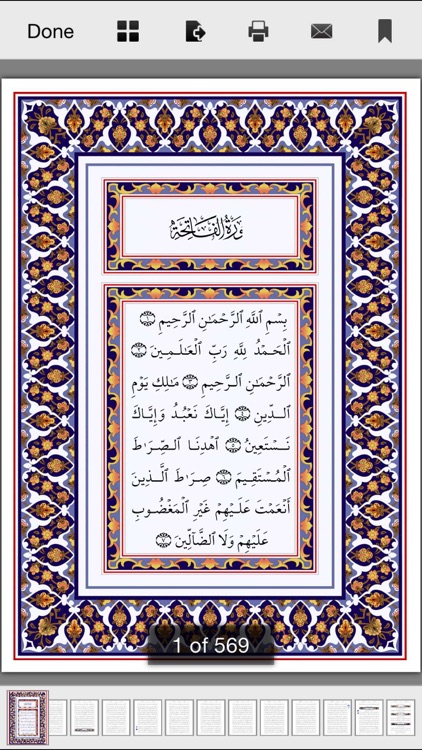 Done
سورة الفاتحة
بِسْمِ ٱللَّهِ ٱلرَّحْمَٰنِ ٱلرَّحِيمِ ١
ٱلْحَمْدُ لِلَّهِ رَبِّ ٱلْعَالَمِينَ ٢
ٱلرَّحْمَٰنِ ٱلرَّحِيمِ ٣ مَالِكِ يَوْمِ
ٱلدِّينِ ٤ إِيَّاكَ نَعْبُدُ وَإِيَّاكَ
نَسْتَعِينُ ٥ ٱهْدِنَا ٱلصِّرَٰطَ
ٱلْمُسْتَقِيمَ ٦ صِرَٰطَ ٱلَّذِينَ
أَنْعَمْتَ عَلَيْهِمْ غَيْرِ ٱلْمَغْضُوبِ
عَلَيْهِمْ وَلَا ٱلضَّآلِّينَ ٧
1 of 569